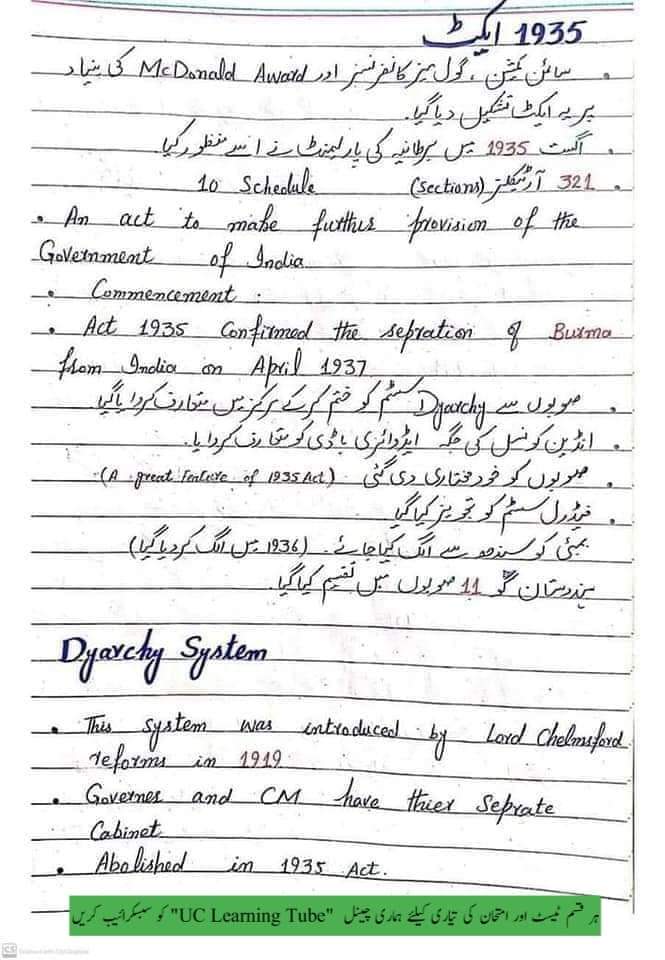 1935 ایکٹ
• سائمن کمیشن ، گول میز کانفرنسز اور McDonald Award کی بنیاد
پر یہ ایکٹ تشکیل دیا گیا۔
• اگست 1935 میں برطانیہ کی پارلیمنٹ نے اسے منظور کیا
• 321 آرٹیکلز (Sections) 10 Schedule
• An act to make further provision of the
Government of India
• Commencement .
• Act 1935 Confirmed the sepration of Burma
from India on April 1937
• صوبوں سے Dyarchy سسٹم کو ختم کرکے مرکز میں متعارف کروایا گیا
• انڈین کونسل کی جگہ ایڈوائزی باڈی کو متعارف کروایا۔
• صوبوں کو خودمختاری دی گئی (A great Feature of 1935 Act)
• فیڈرل سسٹم کو تجویز کیا گیا
بمبئی کو سندھ سے الگ کیا جائے۔ (1936 میں الگ کردیا گیا)
ہندوستان کو 11 صوبوں میں تقسیم کیا گیا۔
Dyarchy System
• This system was introduced by Lord Chelmsford
reforms in 1919
• Governes and CM have thier Seprate
Cabinet
• Abolished in 1935 Act.
ہر قسم ٹیسٹ اور امتحان کی تیاری کیلئے ہماری چینل "UC Learning Tube" کو سبسکرائیب کریں
CS Scanned with CamScanner